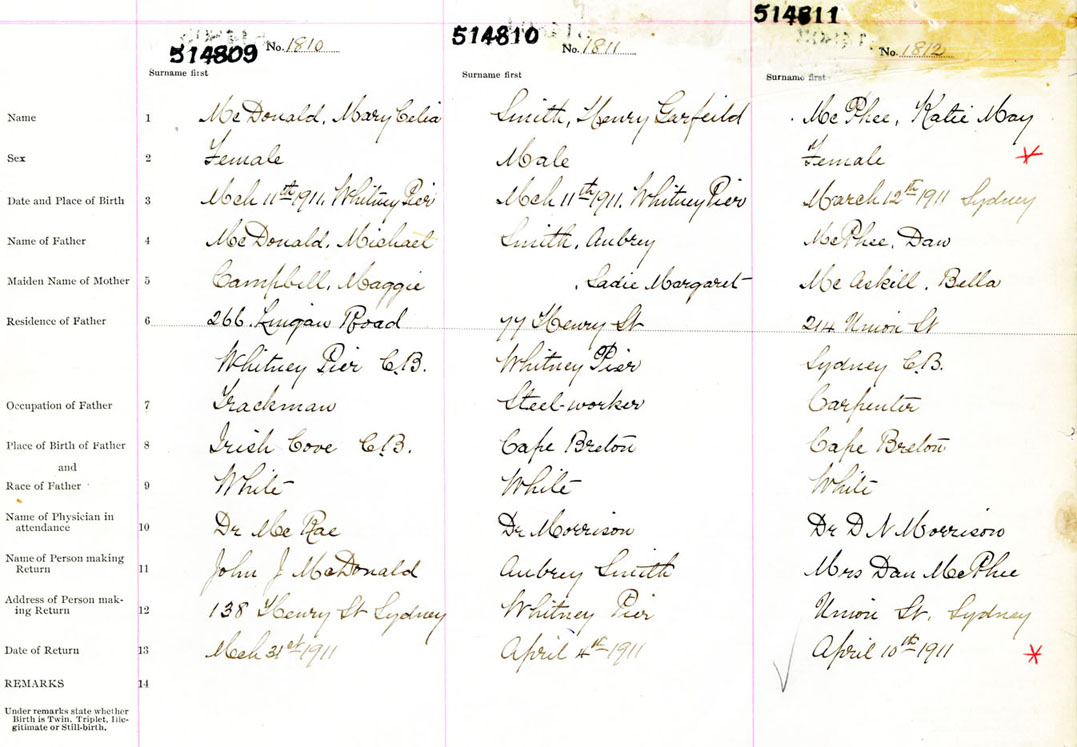 514809 No. 1810 514810 No. 1811 514811 No. 1812
Surname first Surname first Surname first
Name 1 McDonald, Mary Celia Smith, Henry Garfeild McPhee, Katie May
Sex 2 Female Male Female
Date and Place of Birth 3 Mch 11th 1911. Whitney Pier Mch 11th 1911. Whitney Pier March 12th 1911 Sydney
Name of Father 4 McDonald, Michael Smith, Aubrey McPhee, Dan
Maiden Name of Mother 5 Campbell, Maggie , Sadie Margaret McAskill, Bella
Residence of Father 6 266 Lingan Road 77 Henry St 214 Union St
Whitney Pier C.B. Whitney Pier Sydney C.B.
Occupation of Father 7 Trackman Steel-worker Carpenter
Place of Birth of Father 8 Irish Cove C.B. Cape Breton Cape Breton
and
Race of Father 9 White White White
Name of Physician in
attendance 10 Dr McRae Dr Morrison Dr D N Morrison
Name of Person making
Return 11 John J McDonald Aubrey Smith Mrs Dan McPhee
Address of Person mak-
ing Return 12 138 Henry St Sydney Whitney Pier Union St. Sydney
Date of Return 13 Mch 31st 1911 April 4th 1911 April 10th 1911
REMARKS 14
Under remarks state whether
Birth is Twin, Triplet, Ille-
gitimate or Still-birth.